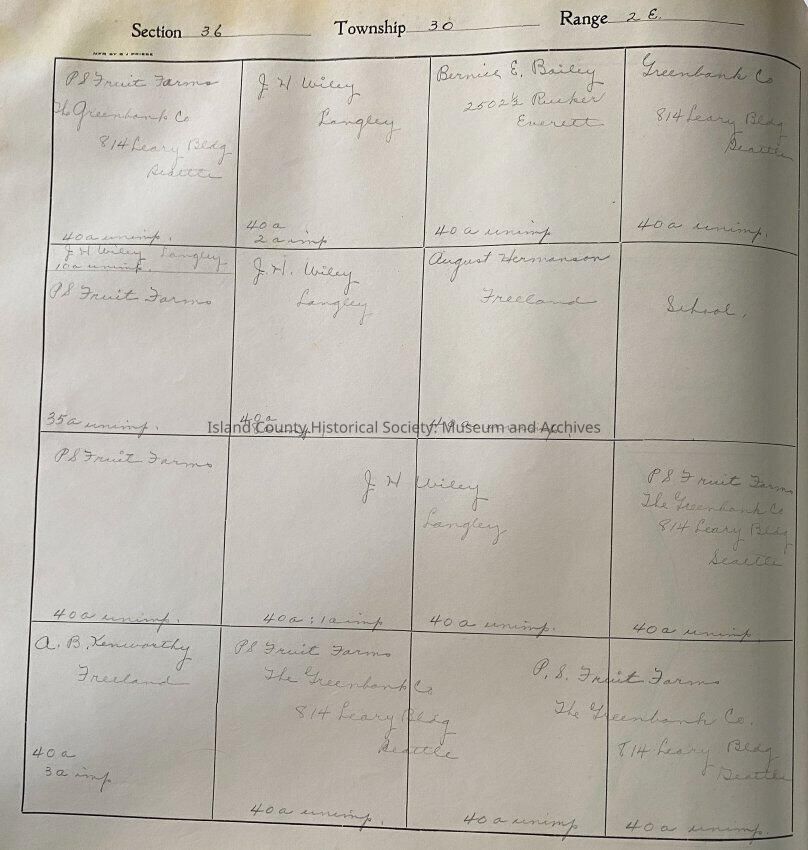 Section 36 Township 30 Range 2 E.
MFR BY
PS Fruit Farms
The Greenbank Co
814 Leary Bldg
Seattle
40 a unimp.
J H Wiley
Langley
40 a
2 a imp
Bernice E. Bailey
2502½ Rucker
Everett
40 a unimp
Greenbank Co
814 Leary Bldg
Seattle
40 a unimp.
J H Wiley Langley
10 a unimp.
PS Fruit Farms
35 a unimp.
J. H. Wiley
Langley
40 a
August Hermanson
Freeland
School.
Island County Historical Society: Museum and Archives
PS Fruit Farms
40 a unimp.
J H Wiley
Langley
40 a : 1 a imp
40 a unimp.
PS Fruit Farms
The Greenbank Co
814 Leary Bldg
Seattle
40 a unimp.
A. B. Kenworthy
Freeland
40 a
3 a imp
PS Fruit Farms
The Greenbank Co
814 Leary Bldg
Seattle
40 a unimp.
P. S. Fruit Farms
The Greenbank Co.
814 Leary Bldg
Seattle
40 a unimp
40 a unimp.